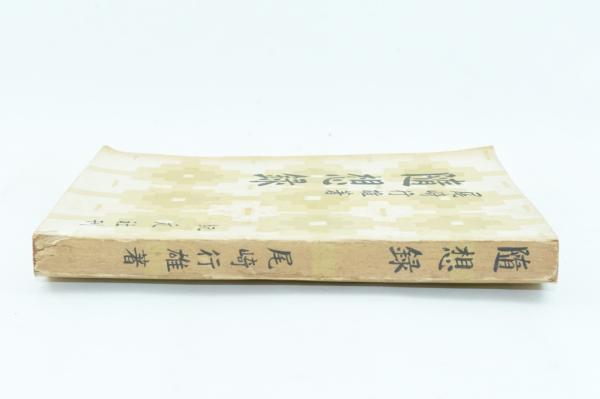 隨想録
尾崎行雄著
紀元社刊
隨想録
尾崎行雄著